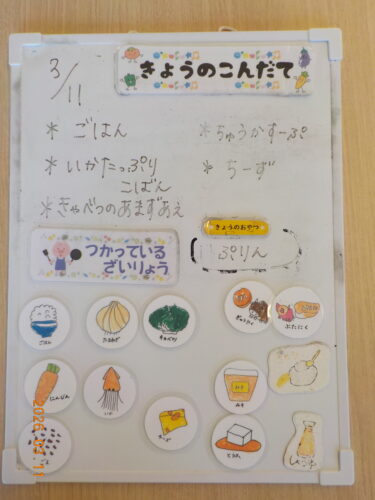 きょうのこんだて
3/11
＊ ごはん
＊ ちゅうかすーぷ
＊ いかたっぷり
こばん
＊ ちーず
＊ きゃべつのあまずあえ
きょうのおやつ
ぷりん
つかっている
ざいりょう
ごはん
たまねぎ
キャベツ
ぎゅうにく
ぶたにく
にんじん
いか
みそ
みそ
チーズ
ごま
とうふ
しょうゆ